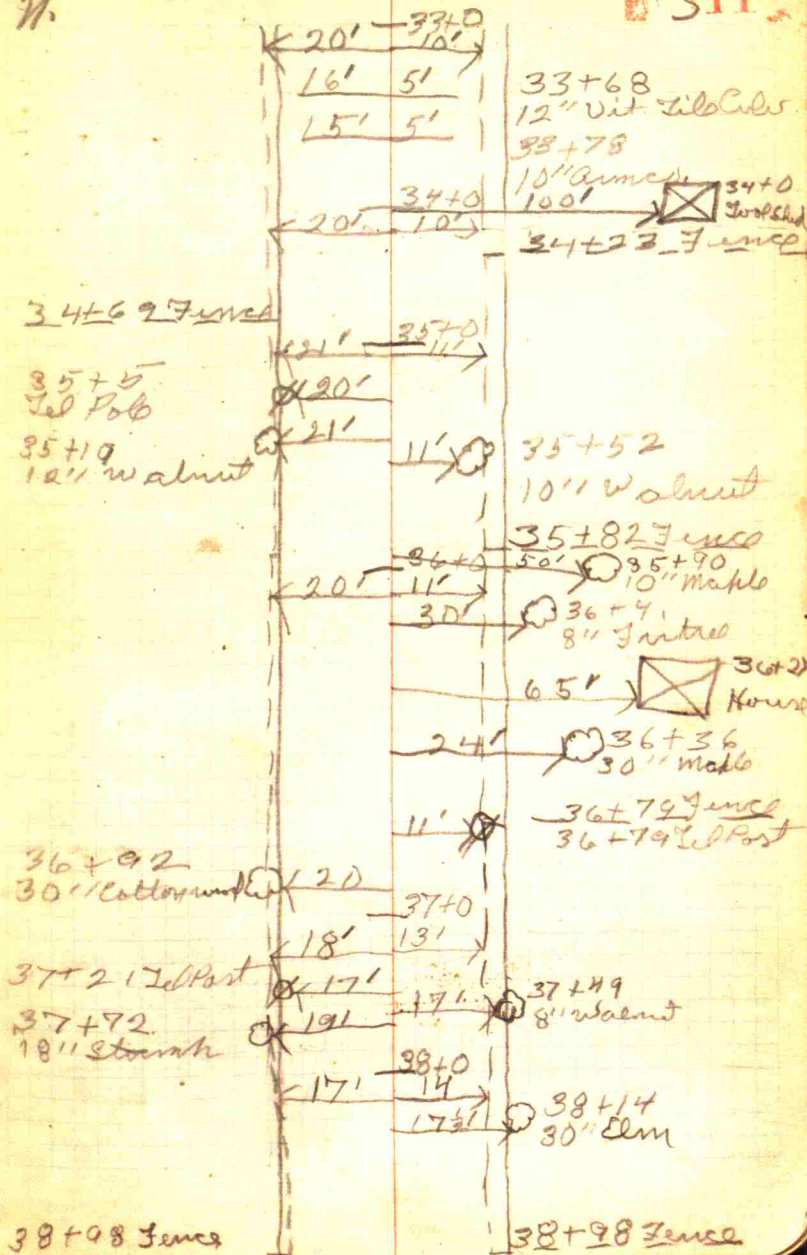 33+0
20' 10'
16' 5'
33+68
12" Vit. Tile Culv
15' 5'
33+78
10" Armco
34+0
100'
34+0
Tool Shed
20' 10'
34+23 Fence
34+69 Fence
35+0
21' 11'
35+5
Tel Pole
20'
35+10
10" Walnut
21'
11'
35+52
10" Walnut
35+82 Fence
36+0
50'
35+90
10" Maple
20' 11'
30'
36+4
8"
65'
House
24'
36+36
30" Maple
11'
36+79 Fence
36+79 Tel Post
36+92
30" Cottonwood
20
37+0
18' 13'
37+21 Tel Post
17'
17'
37+49
8" Walnut
37+72
18" Stump
19'
38+0
17' 14
17½'
38+14
30" Elm
38+98 Fence
38+98 Fence